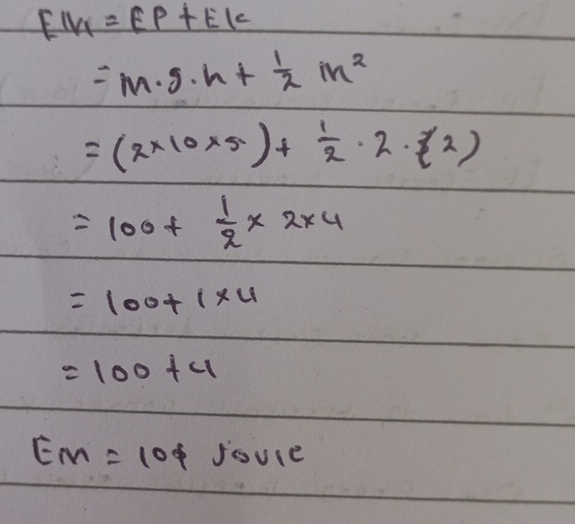 EM = EP + EK
= m.g.h + 1/2 m²
= (2×10×5) + 1/2 . 2 . (2)
= 100 + 1/2 × 2×4
= 100 + 1×4
= 100 + 4
EM = 104 Joule